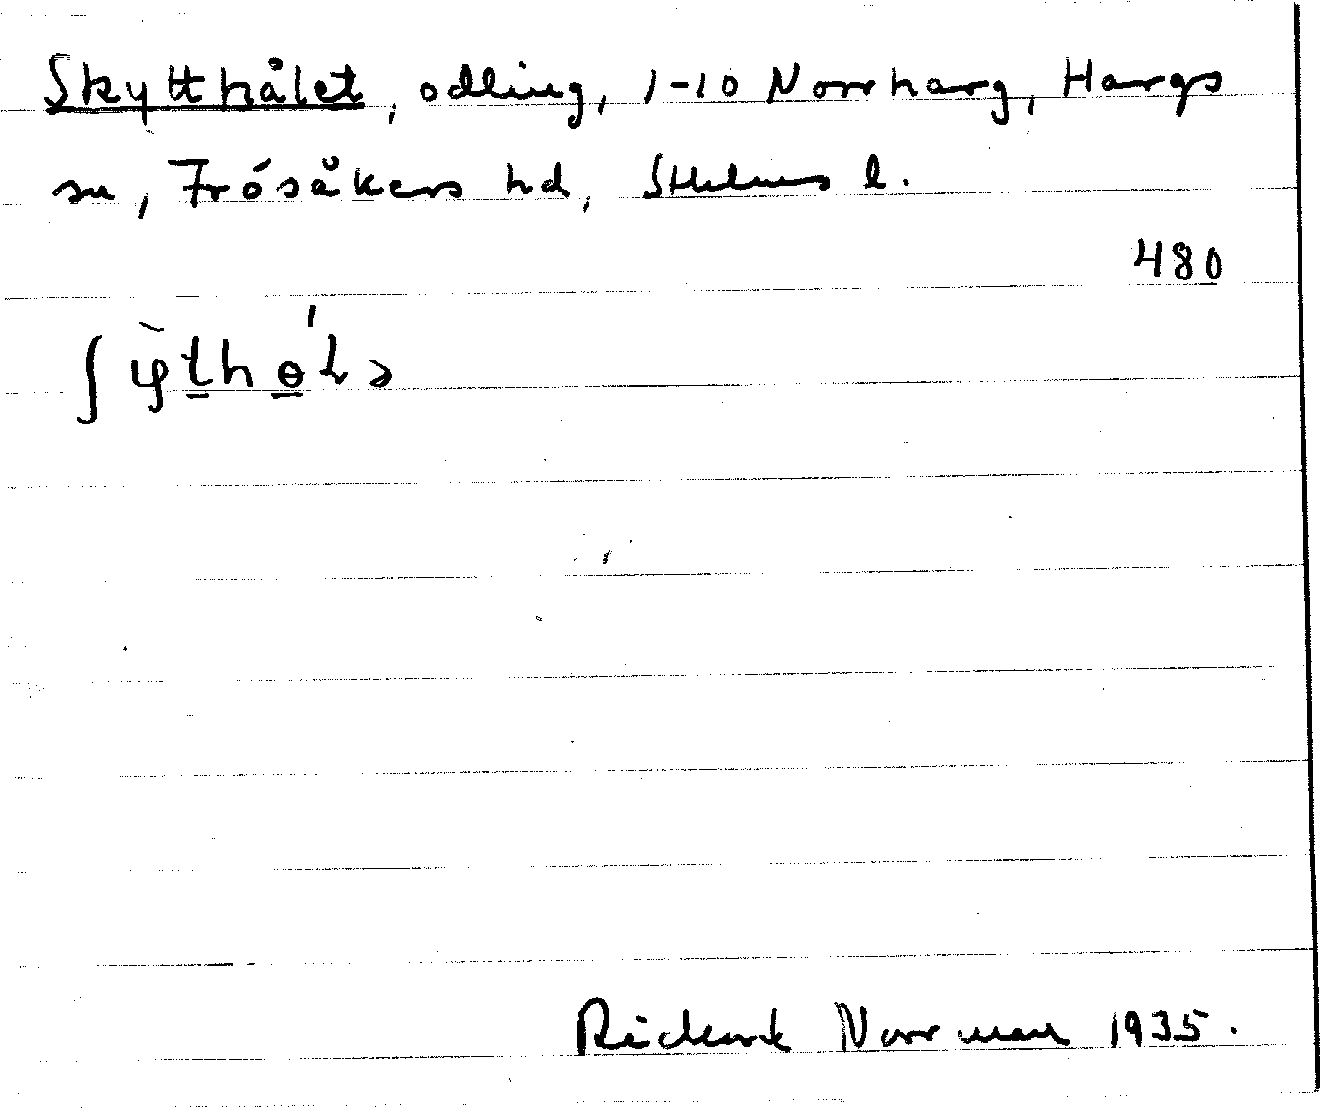 Skytthålet, odling, 1-10 Norrharg, Hargs
sn, Frösåkers hd, Sthlms l.
480
Rickard Norrman 1935.